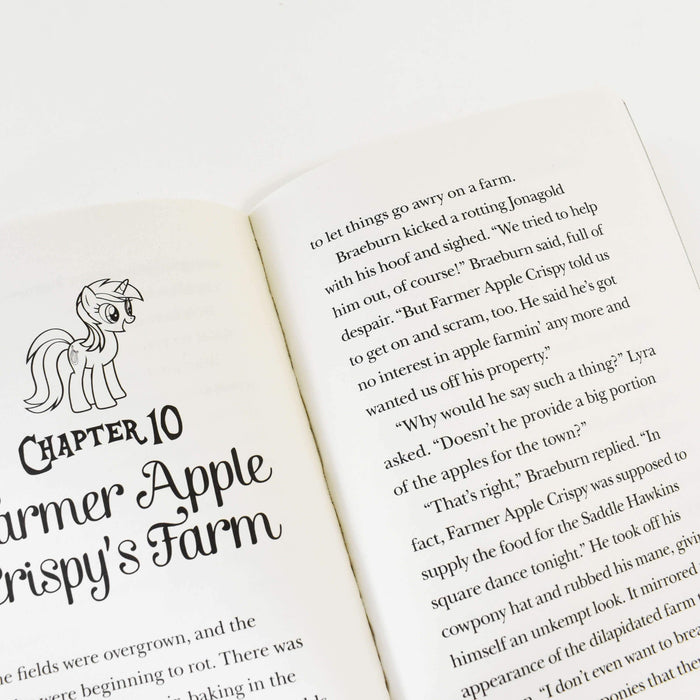 CHAPTER 10
armer Apple
rispy's Farm
e fields were overgrown, and the
were beginning to rot. There was
baking in the
to let things go awry on a farm.
Braeburn kicked a rotting Jonagold
with his hoof and sighed. “We tried to help
him out, of course!” Braeburn said, full of
despair. “But Farmer Apple Crispy told us
to get on and scram, too. He said he’s got
no interest in apple farmin’ any more and
wanted us off his property.”
“Why would he say such a thing?” Lyra
asked. “Doesn’t he provide a big portion
of the apples for the town?”
“That’s right,” Braeburn replied. “In
fact, Farmer Apple Crispy was supposed to
supply the food for the Saddle Hawkins
square dance tonight.” He took off his
cowpony hat and rubbed his mane, givi
himself an unkempt look. It mirrored
appearance of the dilapidated farm
“I don’t even want to brea
ponies that the